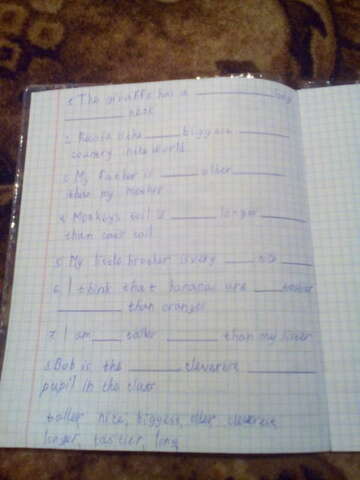 1. The giraffe has a ____________ long
____________ neck
2. Russia is the ______ biggest ______
country in the world
3. My father is ______ older ______
than my mother
4. Monkeys tail is ______ longer ______
than cats tail
5. My little brother is very ____ nice ____
6. I think that bananas are ____ tastier
____________ than oranges
7. I am ____ taller ______ than my sister
8. Bob is the ________ cleverest ________
pupil in the class
taller, nice, biggest, older, cleverest
longer, tastier, long